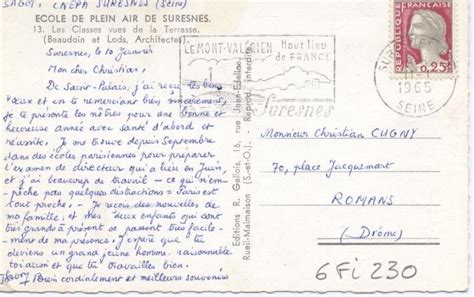 SAGOT, CNEPA SURESNES (Seine)
ECOLE DE PLEIN AIR DE SURESNES.
13. Les Classes vues de la Terrasse.
(Beaudoin et Lods, Architectes).
Suresnes, le 10 Janvier
Mon cher Christian,
De Saint-Palais, j'ai reçu tes bons
vœux et en te remerciant bien sincèrement,
je te présente les nôtres pour une bonne et
heureuse année avec santé d'abord et
réussite. Je me trouve depuis Septembre
dans des écoles parisiennes pour préparer
l'examen de directeur qui a lieu en Juin,
et j'ai beaucoup de travail - ce qui n'em-
pêche pas quelques distractions - Paris est
tout proche. Je reçois des nouvelles de
ma famille, et mes deux enfants qui sont
très grands à présent se passent très facile-
ment de ma présence. J'espère que tu
deviens un grand jeune homme raisonnable
toi aussi et que tu travailles bien.
Bien cordialement et meilleurs souvenirs
Editions R. Gallois, 16, rue Jean-Edeline
Rueil-Malmaison (S.-et-O.) - Reprod. Interdite.
LE MONT-VALERIEN
Haut lieu
de FRANCE
Suresnes
1965
SEINE
REPUBLIQUE
FRANÇAISE
0,25
Monsieur Christian CUGNY
70, place Jacquemart
ROMANS
(Drôme)
6 Fi 230